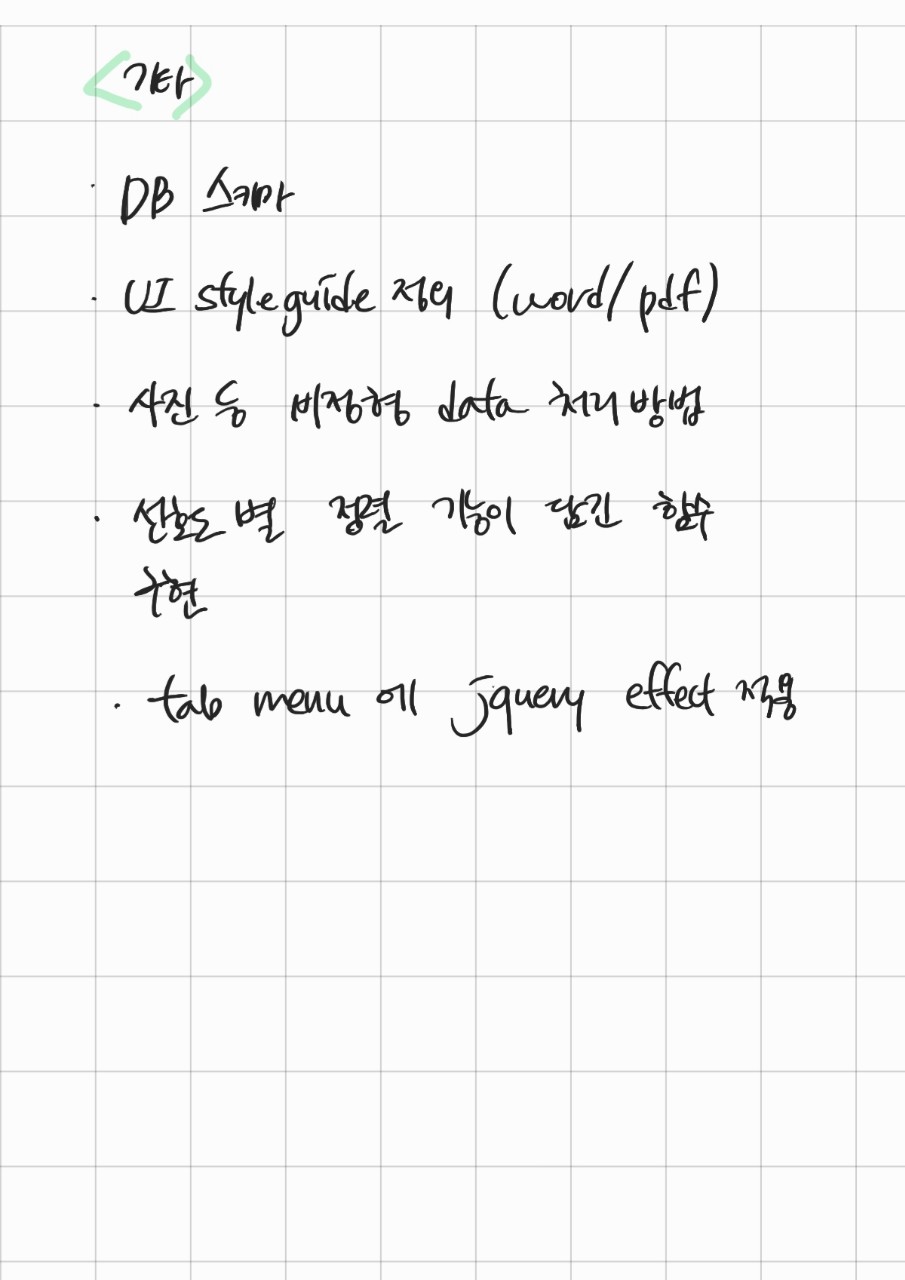 <기타>
· DB 스키마
· UI style guide 정의 (word/pdf)
· 사진 등 비정형 data 처리 방법
· 선호도 별 정렬 기능이 담긴 함수
구현
· tab menu 에 jquery effect 적용